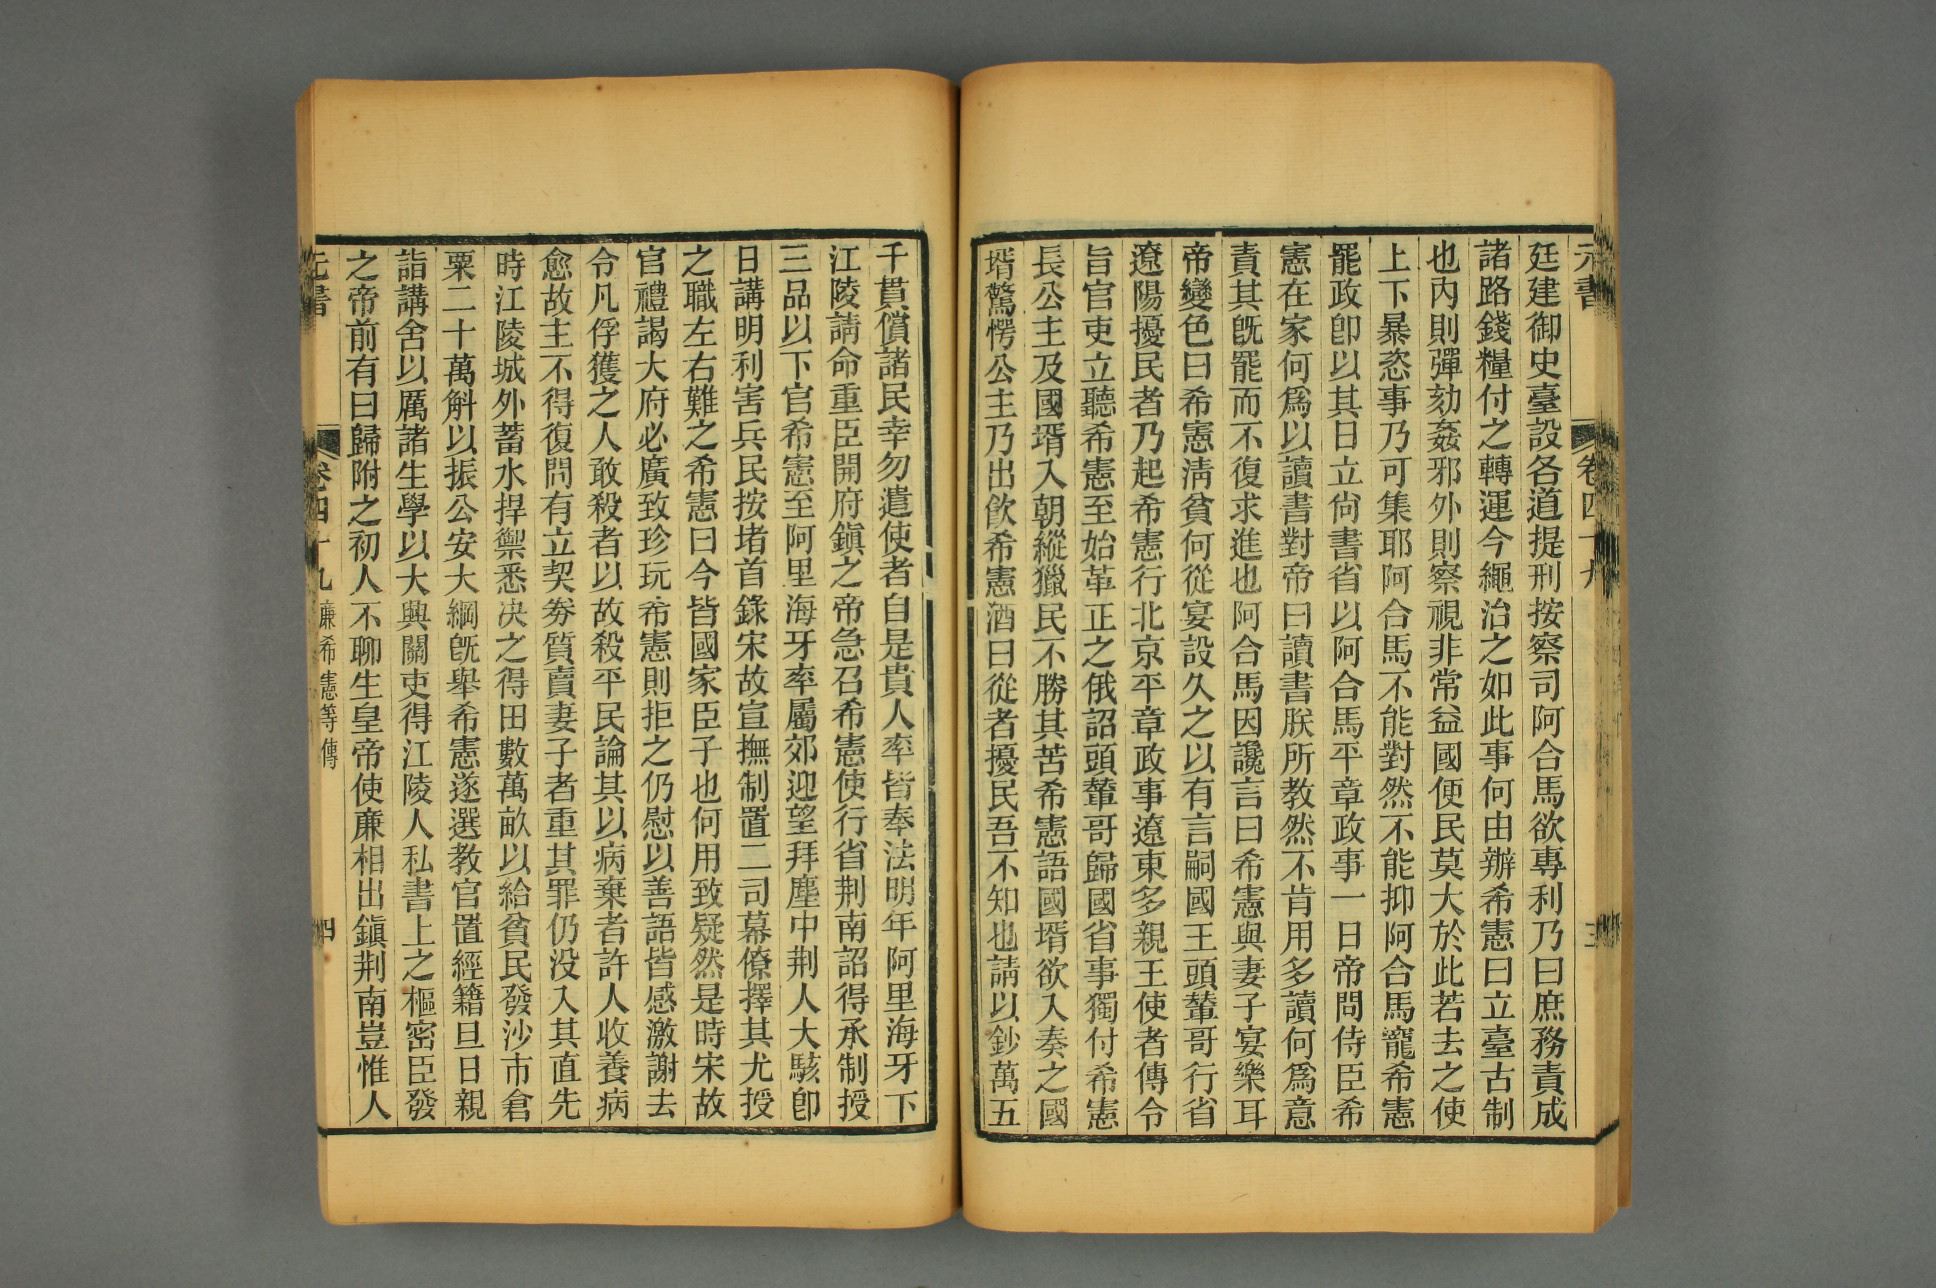 元書 卷四十九 三
廷建御史臺設各道提刑按察司阿合馬欲專利乃曰庶務責成
諸路錢糧付之轉運今繩治之如此事何由辦希憲曰立臺古制
也內則彈劾姦邪外則察視非常益國便民莫大於此若去之使
上下暴恣事乃可集耶阿合馬不能對然不能抑阿合馬寵希憲
罷政卽以其日立尙書省以阿合馬平章政事一日帝問侍臣希
憲在家何爲以讀書對帝曰讀書朕所教然不肯用多讀何爲意
責其旣罷而不復求進也阿合馬因讒言曰希憲與妻子宴樂耳
帝變色曰希憲淸貧何從宴設久之以有言嗣國王頭輦哥行省
遼陽擾民者乃起希憲行北京平章政事遼東多親王使者傳令
旨官吏立聽希憲至始革正之俄詔頭輦哥歸國省事獨付希憲
長公主及國壻入朝縱獵民不勝其苦希憲語國壻欲入奏之國
壻驚愕公主乃出飮希憲酒曰從者擾民吾不知也請以鈔萬五
千貫償諸民幸勿遣使者自是貴人率皆奉法明年阿里海牙下
江陵請命重臣開府鎭之帝急召希憲使行省荆南詔得承制授
三品以下官希憲至阿里海牙率屬郊迎望拜塵中荆人大駭卽
日講明利害兵民按堵首錄宋故宣撫制置二司幕僚擇其尤授
之職左右難之希憲曰今皆國家臣子也何用致疑然是時宋故
官禮謁大府必廣致珍玩希憲則拒之仍慰以善語皆感激謝去
令凡俘獲之人敢殺者以故殺平民論其以病棄者許人收養病
愈故主不得復問有立契券質賣妻子者重其罪仍没入其直先
時江陵城外蓄水捍禦悉決之得田數萬畝以給貧民發沙市倉
粟二十萬斛以振公安大綱旣舉希憲遂選教官置經籍旦日親
詣講舍以厲諸生學以大興關吏得江陵人私書上之樞密臣發
之帝前有曰歸附之初人不聊生皇帝使廉相出鎭荆南豈惟人
元書 卷四十九 廉希憲等傳 四